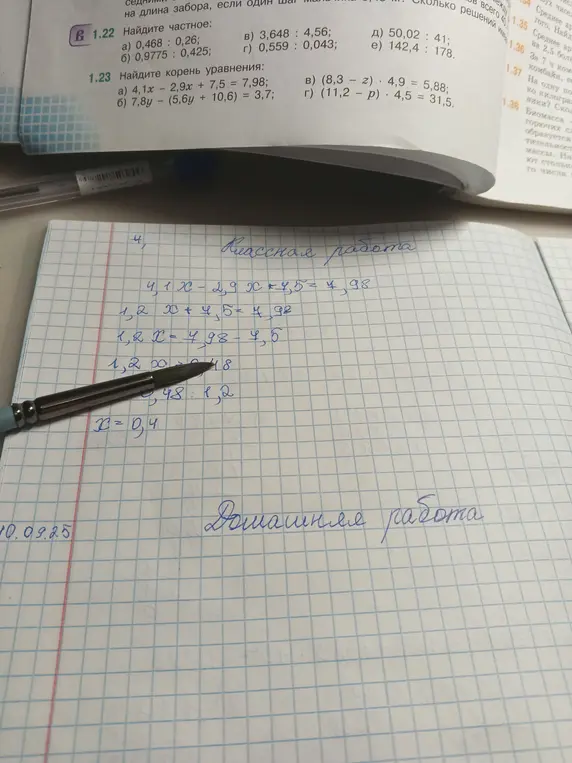 на длина забора, если один шаг
Сколько решений
В 1.22 Найдите частное:
а) 0,468 : 0,26; в) 3,648 : 4,56; д) 50,02 : 41;
б) 0,9775 : 0,425; г) 0,559 : 0,043; е) 142,4 : 178.
1.23 Найдите корень уравнения:
а) 4,1x − 2,9x + 7,5 = 7,98; в) (8,3 − z) · 4,9 = 5,88;
б) 7,8y − (5,6y + 10,6) = 3,7; г) (11,2 − p) · 4,5 = 31,5.
1.35
1.36
1.37
1.38
Классная работа
4,1 x − 2,9 x + 7,5 = 7,98
1,2 x + 7,5 = 7,98
1,2 x = 7,98 − 7,5
1,2 x
0,48 : 1,2
x = 0,4
10.09.25 Домашняя работа